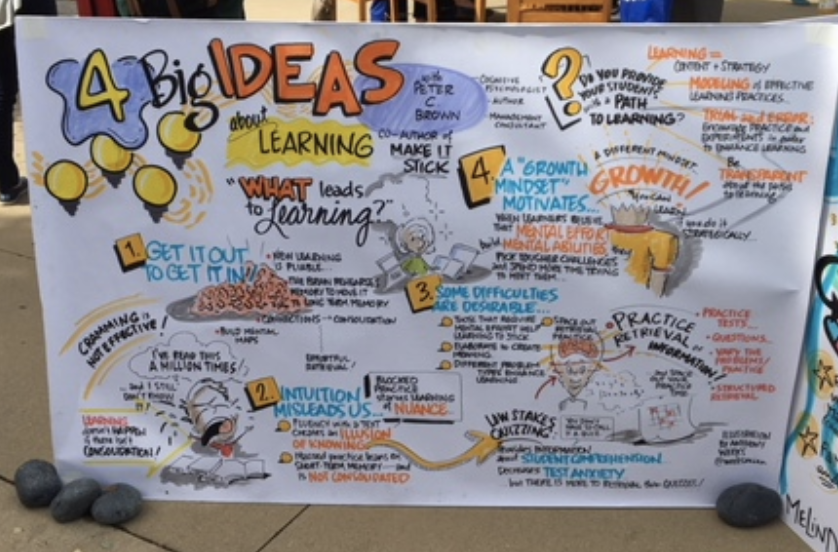 4 Big IDEAS
about
LEARNING
with
PETER
C.
BROWN
CO-AUTHOR of
MAKE IT
STICK
COGNITIVE
PSYCHOLOGIST
AUTHOR
MANAGEMENT
CONSULTANT
"WHAT leads
to Learning?"
?
DO YOU PROVIDE
YOUR STUDENTS
with a PATH
TO LEARNING?
LEARNING =
CONTENT + STRATEGY
MODELING of EFFECTIVE
LEARNING PRACTICES...
TRIAL and ERROR:
Encourage PRACTICE and
EXPERIMENTS in order
to ENHANCE LEARNING
Be
TRANSPARENT
about the
to learning
1. GET IT OUT
TO GET IT IN
NEW LEARNING
IS PLIABLE...
THE BRAIN REHEARSES
MEMORY TO MOVE IT
TO LONG TERM MEMORY
CONNECTIONS → CONSOLIDATION
BUILD MENTAL
MAPS
EFFORTFUL
RETRIEVAL!
CRAMMING is
NOT EFFECTIVE!
I'VE READ THIS
A MILLION TIMES!
...and I STILL
DON'T KNOW
IT!
LEARNING
doesn't HAPPEN
if there isn't
CONSOLIDATION!
2. INTUITION
MISLEADS US...
FLUENCY with a TEXT
CREATES an ILLUSION
OF KNOWING
Massed practice leans on
SHORT-TERM MEMORY and
is NOT CONSOLIDATED
BLOCKED
PRACTICE
LEARNING
of NUANCE...
3. SOME DIFFICULTIES
ARE DESIRABLE...
THOSE THAT REQUIRE
MENTAL EFFORT HELP
LEARNING TO STICK
ELABORATE to CREATE
MEANING
DIFFERENT PROBLEM
TYPES ENHANCE
LEARNING
SPACE OUT
RETRIEVAL
PRACTICE
4. A "GROWTH
MINDSET"
MOTIVATES...
WHEN LEARNERS BELIEVE
that MENTAL EFFORT
build MENTAL ABILITIES, they
PICK TOUGHER CHALLENGES
and SPEND MORE TIME TRYING
TO MEET THEM...
A DIFFERENT MINDSET
GROWTH!
YOU CAN
LEARN
if you do it
STRATEGICALLY...
PRACTICE
RETRIEVAL of
INFORMATION!
...and SPACE
OUT YOUR
PRACTICE
TIME
PRACTICE
TESTS...
QUESTIONS...
VARY THE
PROBLEMS/
PRACTICE
STRUCTURED
RETRIEVAL
LOW STAKES
QUIZZING
YOU DON'T
HAVE TO CALL IT
A QUIZ
PROVIDES INFORMATION
about STUDENT COMPREHENSION...
DECREASES TEST ANXIETY
but THERE IS MORE TO RETRIEVAL than QUIZZES!
ILLUSTRATION
BY ANTHONY
WEEKS
MELIND